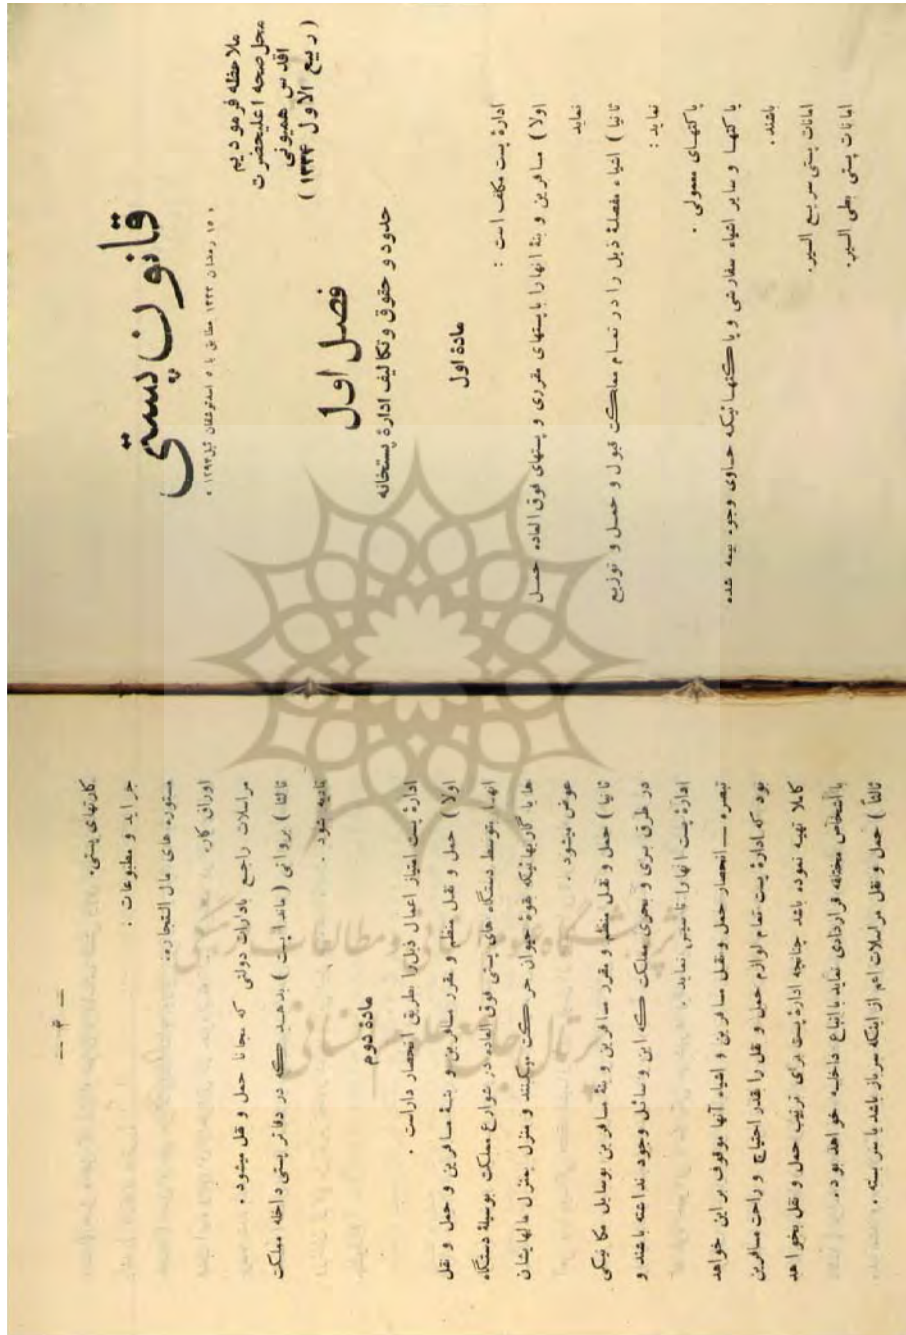 قانون پستی
« ۱۵ رمضان ۱۳۳۳ مطابق با ۵ اسد توشقان ئیل ۱۲۹۴ »
ملاحظه فرمودیم
محل صحه اعلیحضرت
اقدس همیونی
( ربیع الاول ۱۳۳۴ )
فصل اول
حدود و حقوق و تکالیف ادارهٔ پستخانه
مادهٔ اول
ادارهٔ پست مکلف است :
اولا ) مسافرین و بنهٔ آنها را با پستهای مقرری و پستهای فوق العاده حمل
نماید
ثانیا ) اشیاء مفصلهٔ ذیل را در تمام مملکت قبول و حمل و توزیع
نماید :
پاکتهای معمولی .
پاکتها و سایر اشیاء سفارشی و پاکتهائیکه حاوی وجوه بیمه شده
باشند .
امانات پستی سریع السیر .
امانات پستی بطی السیر .
— ۳ —
کارتهای پستی.
جراید و مطبوعات :
مستوره های مال التجاره.
اوراق کار.
مراسلات راجع بادارات دولتی که مجانا حمل و نقل میشود .
ثالثا ) برواتی ( ماندا پست ) بدهد که در دفاتر پستی داخله مملکت
تادیه شود .
مادهٔ دوم
ادارهٔ پست امتیاز اعمال ذیل را بطریق انحصار داراست .
اولا ) حمل و نقل منظم و مقرر مسافرین و بنهٔ مسافرین و حمل و نقل
آنها بتوسط دستگاه های پستی فوق العاده در شوارع مملکت بوسیلهٔ دستگاه
ها یا گاریهائیکه بقوهٔ حیوان حرکت میکنند و منزل بمنزل مالهایشان
عوض میشود .
ثانیا ) حمل و نقل منظم و مقرر مسافرین و بنهٔ مسافرین بوسایل مکانیکی
در طرق بری و بحری مملکت که این وسائل وجود نداشته باشند و
ادارهٔ پست آنها را تاسیس نماید .
تبصره — انحصار حمل و نقل مسافرین و اشیاء آنها موقوف بر این خواهد
بود که ادارهٔ پست تمام لوازم حمل و نقل را بقدر احتیاج و راحت مسافرین
کاملا تهیه نموده باشد چنانچه ادارهٔ پست برای ترتیب حمل و نقل بخواهد
با اشخاص مختلفه قراردادی نماید با اتباع داخله خواهد بود .
ثالثاً ) حمل و نقل مراسلات اعم از اینکه سرباز باشد یا سر بسته .
پژوهشگاه علوم انسانی و مطالعات فرهنگی
پرتال جامع علوم انسانی